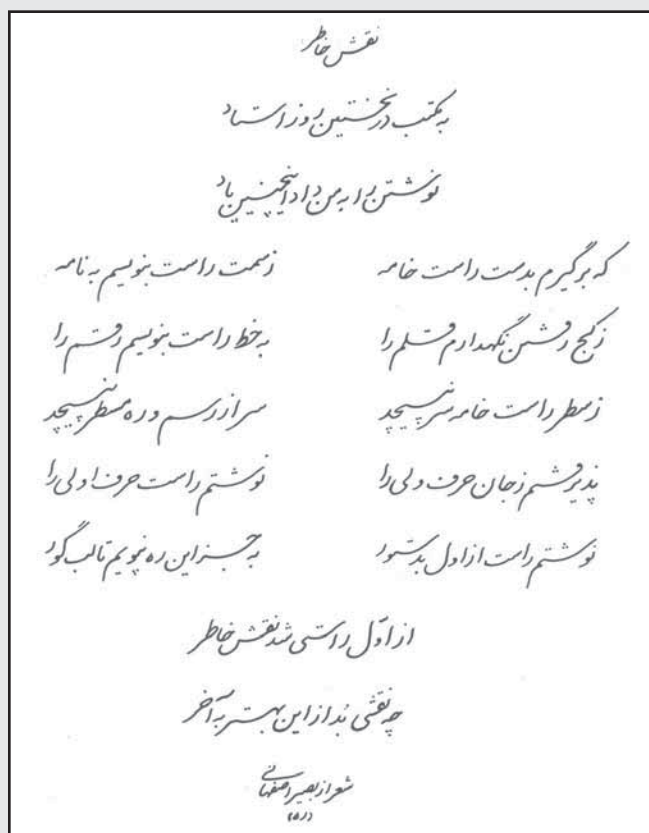 نقش خاطر
به مکتب در نخستین روز استاد
نوشتن را به من داد اینچنین یاد
که برگیرم بدست راست خامه زسمت راست بنویسم به نامه
زکج رفتن نگهدارم قلم را به خط راست بنویسم رقم را
زسطر راست خامه سر نپیچد سر از رسم و ره مسطر نپیچد
پذیرفتم زجان حرف ولی را نوشتم راست حرف اولی را
نوشتم راست از اول بدستور به جز این ره نپویم تا لب گور
از اوّل راستی شد نقش خاطر
چه نقشی بُد از این بهتر به آخر
شعر از بصیر اصفهانی
(ره)